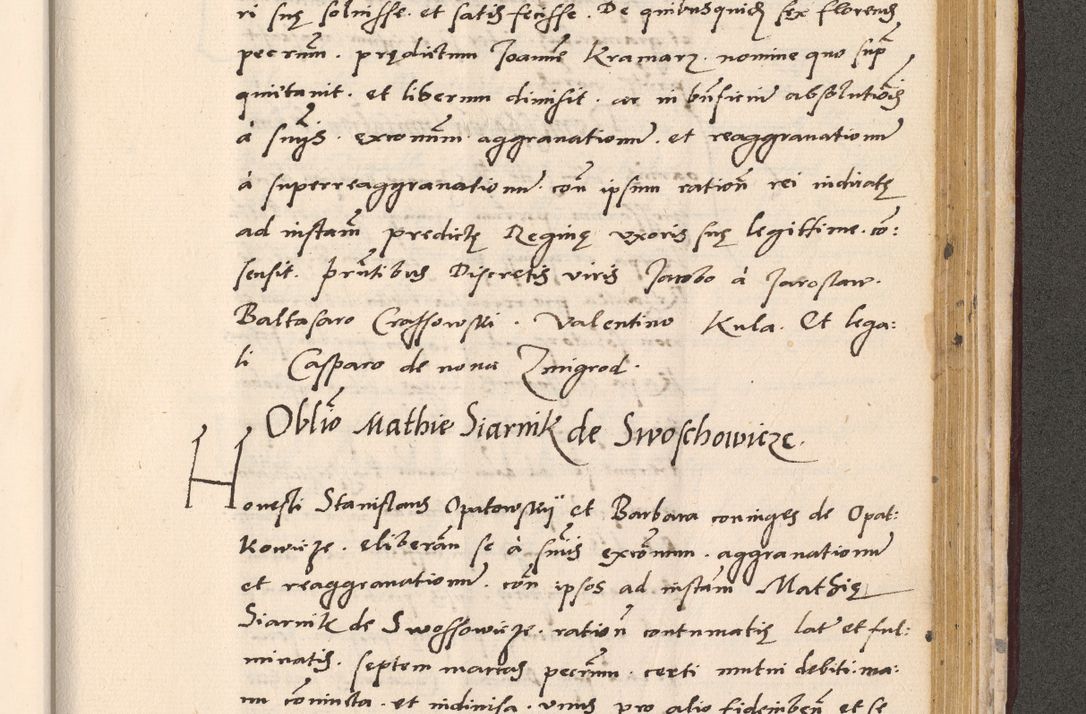 ri suę soluisse et satisfecisse. De quibusquidem sex florenis
pecuniarum. prędictum Joannem Kramarz. nomine quo supra
quitauit. et liberum dimisit. ac in bñficium absolutiõis
à snijs. excomũ. aggrauationum. et reaggrauationum
à superreaggrauationum. coñ ipsum ratioñ rei iudicatę
ad instam̃ predictę Reginę vxoris suę legittime. cõ:
sensit. Prñtibus Discretis viris Jacobo à Jaroslaw.
Baltasaro Crassowski. Valentino Kula. Et lega:
li Casparo de noua Zmigrod.
Oblĩo Mathie Siarnik de Swoschowicze.
Honesti Stanislaus Opatowskÿ et Barbara coniuges de Opat:
kowicze. eliberañ se à snĩis excõmun. aggrauationum
et reaggrauationum. coñ ipsos ad instam̃ Mathię
Siarnik de Swossowicze. ratioñ contumatię lat et ful:
minatis. septem marcas pecũm. certi mutui debiti. ma:
nu cõniuncta. et indiuisa. vnus pro alio fideiubeñ et se